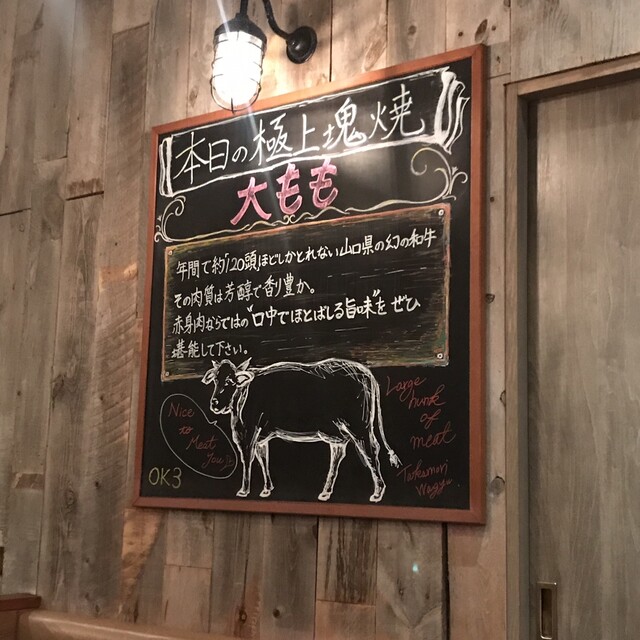 本日の極上塊焼
大もも
年間で約120頭ほどしかとれない山口県の幻の和牛
その肉質は芳醇で香り豊か。
赤身肉ならではの"口中でほとばしる旨味"をぜひ
堪能して下さい。
Nice
to
Meat
you
Large
hunk
of
meat
Takamori
Wagyu
OK3